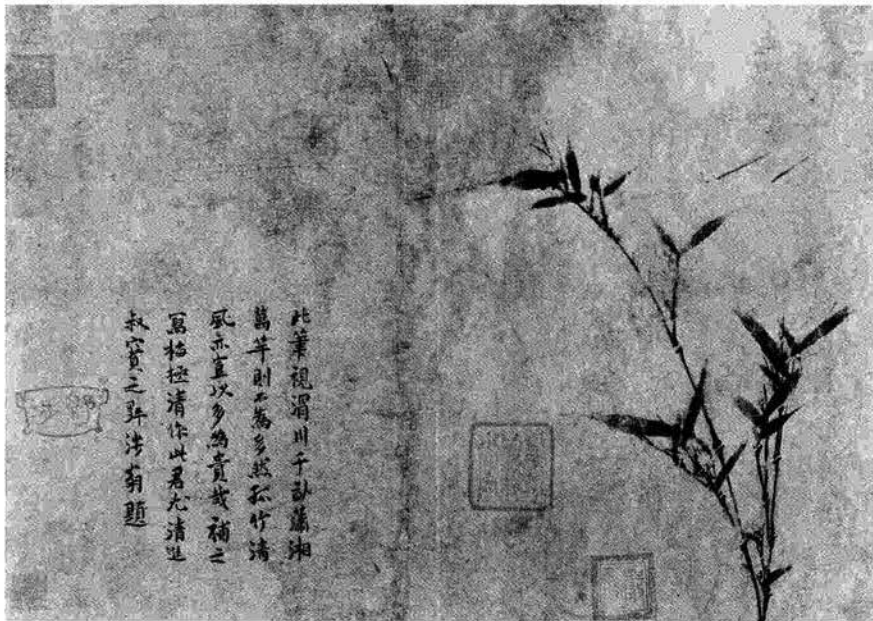 此筆視渭川千畝瀟湘
萬竿則不為多然孤竹清
風亦豈以多為貴哉補之
寫梅極清作此君尤清
叔寳之翁題